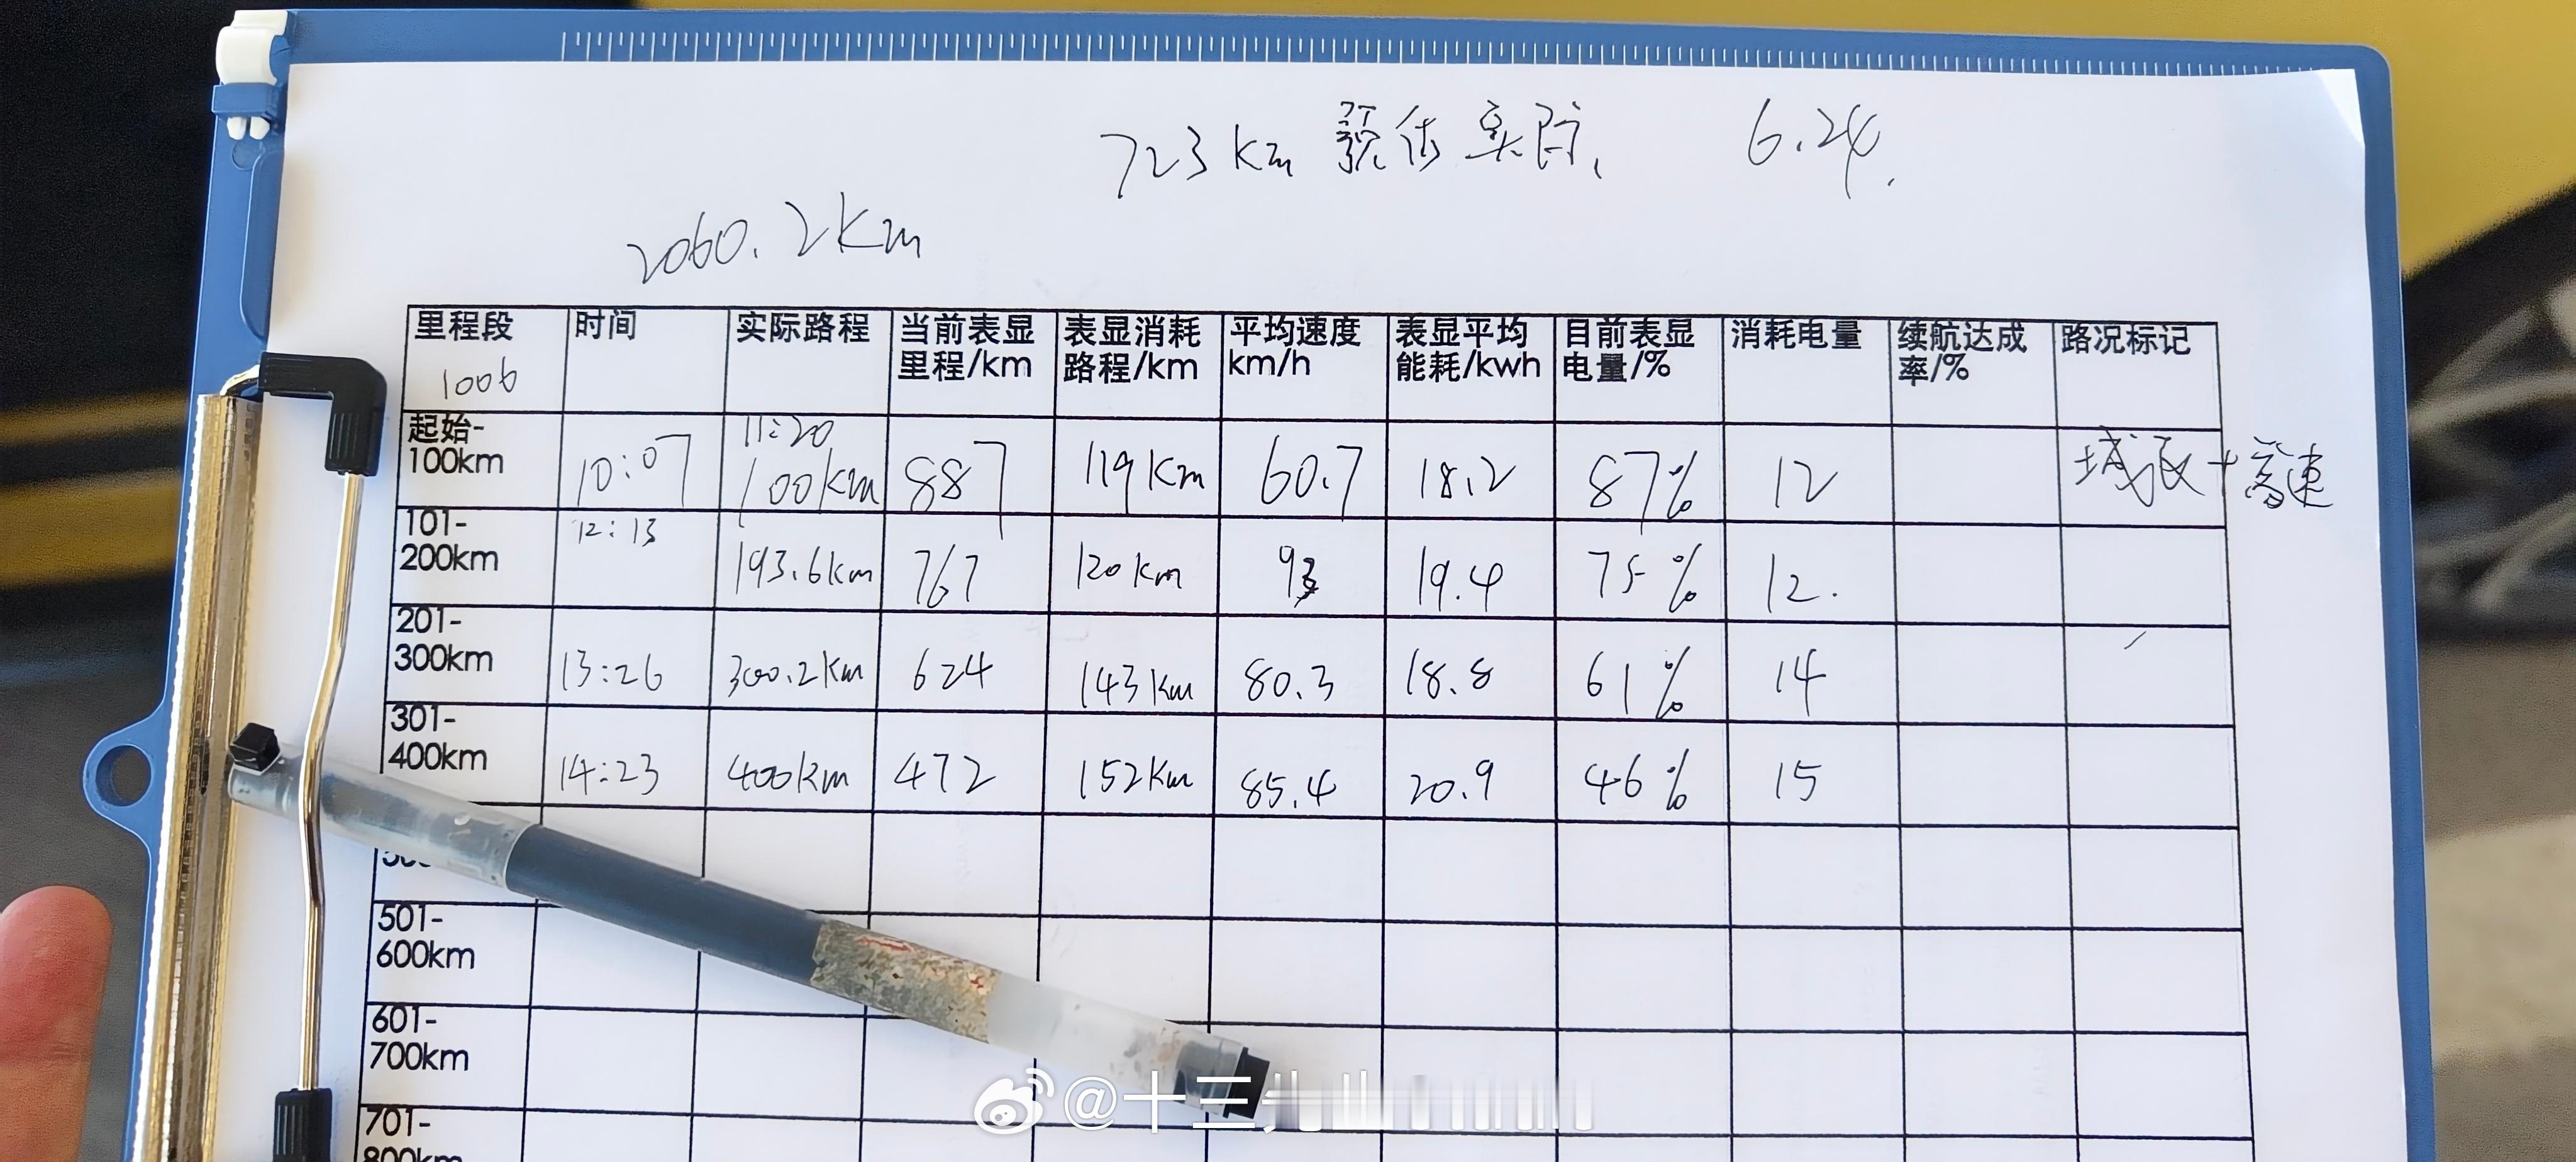 723km 预估实际、 6.24.
2060.2km
里程段 时间 实际路程 当前表显里程/km 表显消耗路程/km 平均速度km/h 表显平均能耗/kwh 目前表显电量/% 消耗电量 续航达成率/% 路况标记
1006
起始-100km 10:07 11:20 100km 887 119km 60.7 18.2 87% 12 城区+高速
101-200km 12:13 193.6km 767 120km 93 19.4 75% 12.
201-300km 13:26 300.2km 624 143km 80.3 18.8 61% 14
301-400km 14:23 400km 472 152km 85.4 20.9 46% 15
501-600km
601-700km
701-800km
@十三